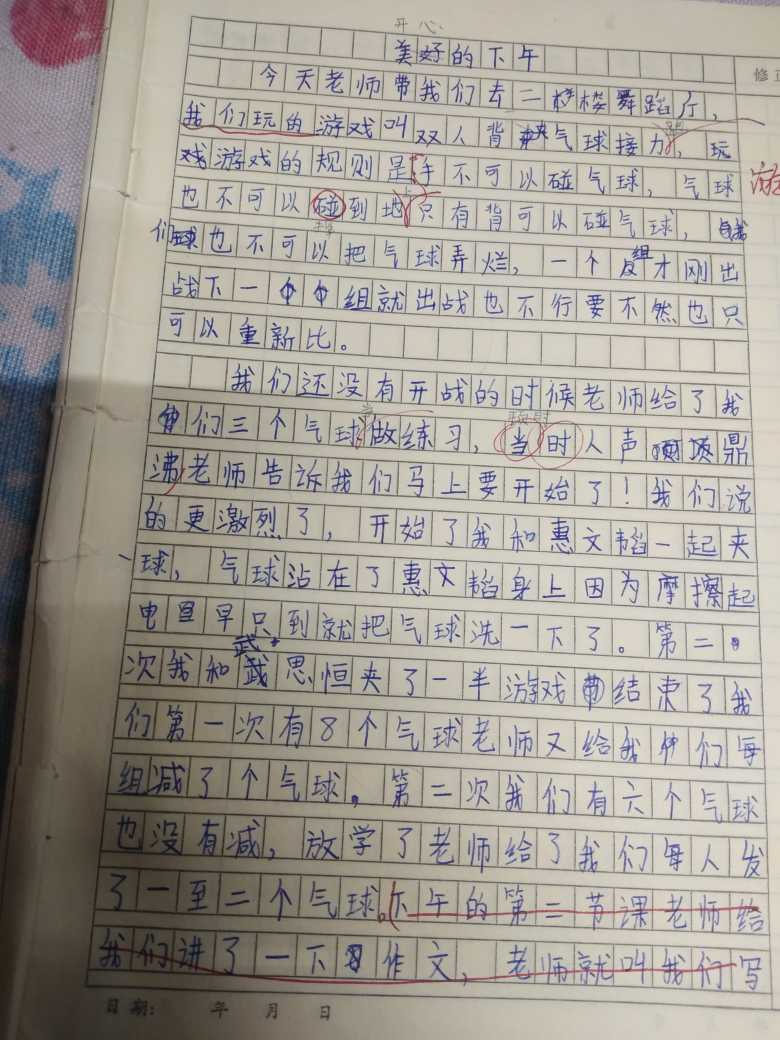 开心
美好的下午
今天老师带我们去二楼舞蹈厅，
我们玩的游戏叫双人背夹气球接力，玩
戏游戏的规则是手不可以碰气球，气球
也不可以碰到地只有背可以碰气球，我
们也不可以把气球弄烂，一个组才刚出
战下一个组就出战也不行要不然也只
可以重新比。
我们还没有开战的时候老师给了我
们三个气球做练习，当时人声鼎
沸老师告诉我们马上要开始了！我们说
的更激烈了，开始了我和惠文韬一起夹
球，气球沾在了惠文韬身上因为摩擦起
电早只到就把气球洗一下了。第二
次我和武思恒夹了一半游戏结束了我
们第一次有8个气球老师又给我们每
组减了个气球。第二次我们有六个气球
也没有减，放学了老师给了我们每人发
了一至二个气球。下午的第二节课老师给
我们讲了一下作文，老师就叫我们写
日期： 年 月 日